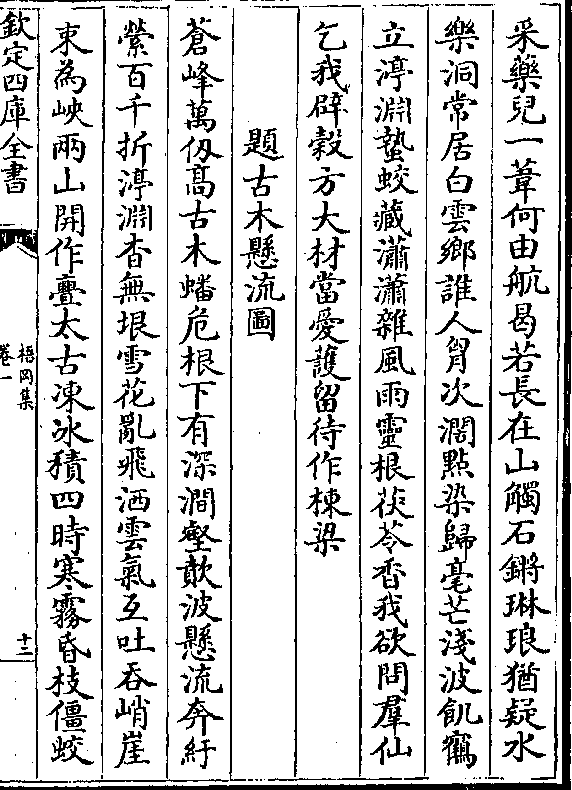 采藥兒一葦何由航曷若長在山觸石鏘琳琅猶疑水
樂洞常居白雲鄉誰人胷次濶點染歸毫芒淺波飢鸛
立渟淵蟄蛟藏瀟瀟雜風雨靈根茯苓香我欲問羣仙
乞我辟穀方大材當愛護留待作棟梁
題古木懸流圖
蒼峰萬仭髙古木蟠危根下有深澗壑歕波懸流奔紆
縈百千折渟淵杳無垠雪花亂飛洒雲氣互吐吞峭崖
束為峽兩山開作亹太古凍冰積四時寒霧昏枝僵蛟
欽定四庫全書
梧岡集
卷一
十二